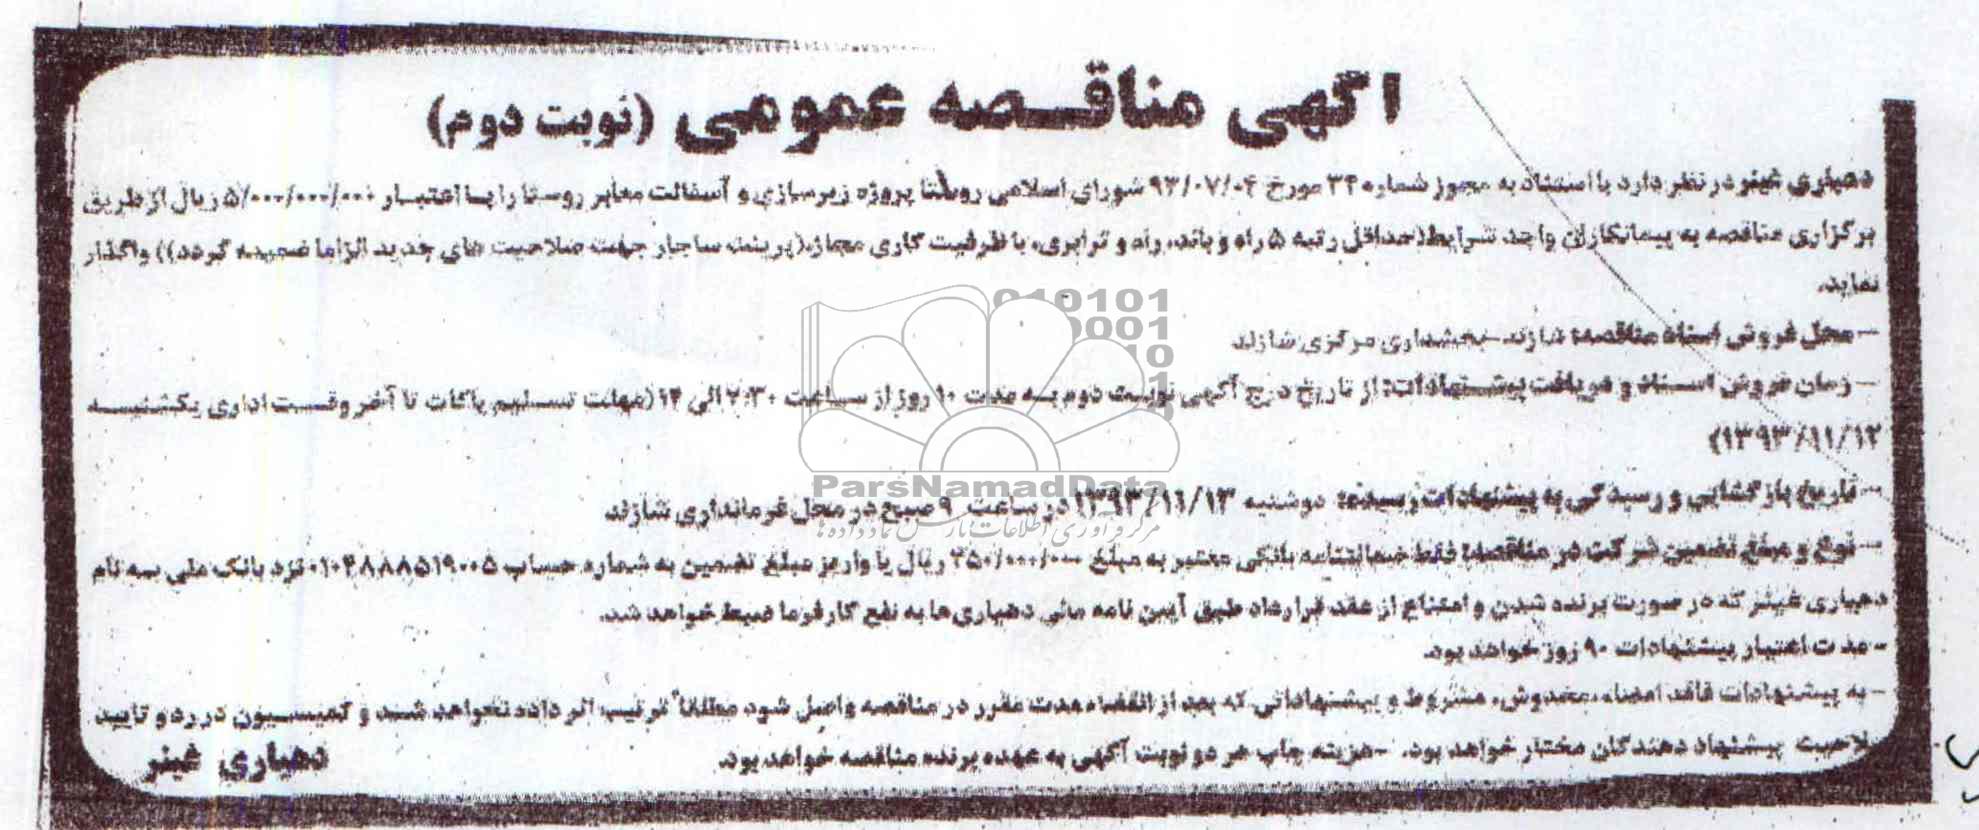 آگهی مناقصه عمومی (نوبت دوم)
دهیاری در نظر دارد با استناد به مجوز شماره ۳۴ مورخ ۹۳/۰۷/۰۴ شورای اسلامی روستا پروژه زیرسازی و آسفالت معابر روستا را با اعتبار ۵/۰۰۰/۰۰۰/۰۰۰ ریال از طریق
برگزاری مناقصه به پیمانکاران واجد شرایط (حداقل رتبه ۵ راه و باند، راه و ترابری، با ظرفیت کاری مجاز، (پرینت ساجار جهت صلاحیت های جدید الزاما ضمیمه گردد)) واگذار
نماید.
- محل فروش اسناد مناقصه: شازند - بخشداری مرکزی شازند
- زمان فروش اسناد و دریافت پیشنهادات: از تاریخ درج آگهی نوبت دوم به مدت ۱۰ روز از ساعت ۷:۳۰ الی ۱۴ (مهلت تسلیم پاکات تا آخر وقت اداری یکشنبه
۱۳۹۳/۱۱/۱۲)
- تاریخ بازگشایی و رسیدگی به پیشنهادات رسیده: دوشنبه ۱۳۹۳/۱۱/۱۳ در ساعت ۹ صبح در محل فرمانداری شازند
- نوع و مبلغ تضمین شرکت در مناقصه: فقط ضمانتنامه بانکی معتبر به مبلغ ۲۵۰/۰۰۰/۰۰۰ ریال یا واریز مبلغ تضمین به شماره حساب ۰۱۰۴۸۸۸۵۱۹۰۰۵ نزد بانک ملی به نام
دهیاری که در صورت برنده شدن و امتناع از عقد قرارداد طبق آیین نامه مالی دهیاری‌ها به نفع کارفرما ضبط خواهد شد.
- مدت اعتبار پیشنهادات ۹۰ روز خواهد بود.
- به پیشنهادات فاقد امضاء، مخدوش، مشروط و پیشنهاداتی که بعد از انقضاء مدت مقرر در مناقصه واصل شود مطلقاً ترتیب اثر داده نخواهد شد و کمیسیون در رد و تایید
صلاحیت پیشنهاد دهندگان مختار خواهد بود. - هزینه چاپ هر دو نوبت آگهی به عهده برنده مناقصه خواهد بود.
دهیاری
ParsNamadData